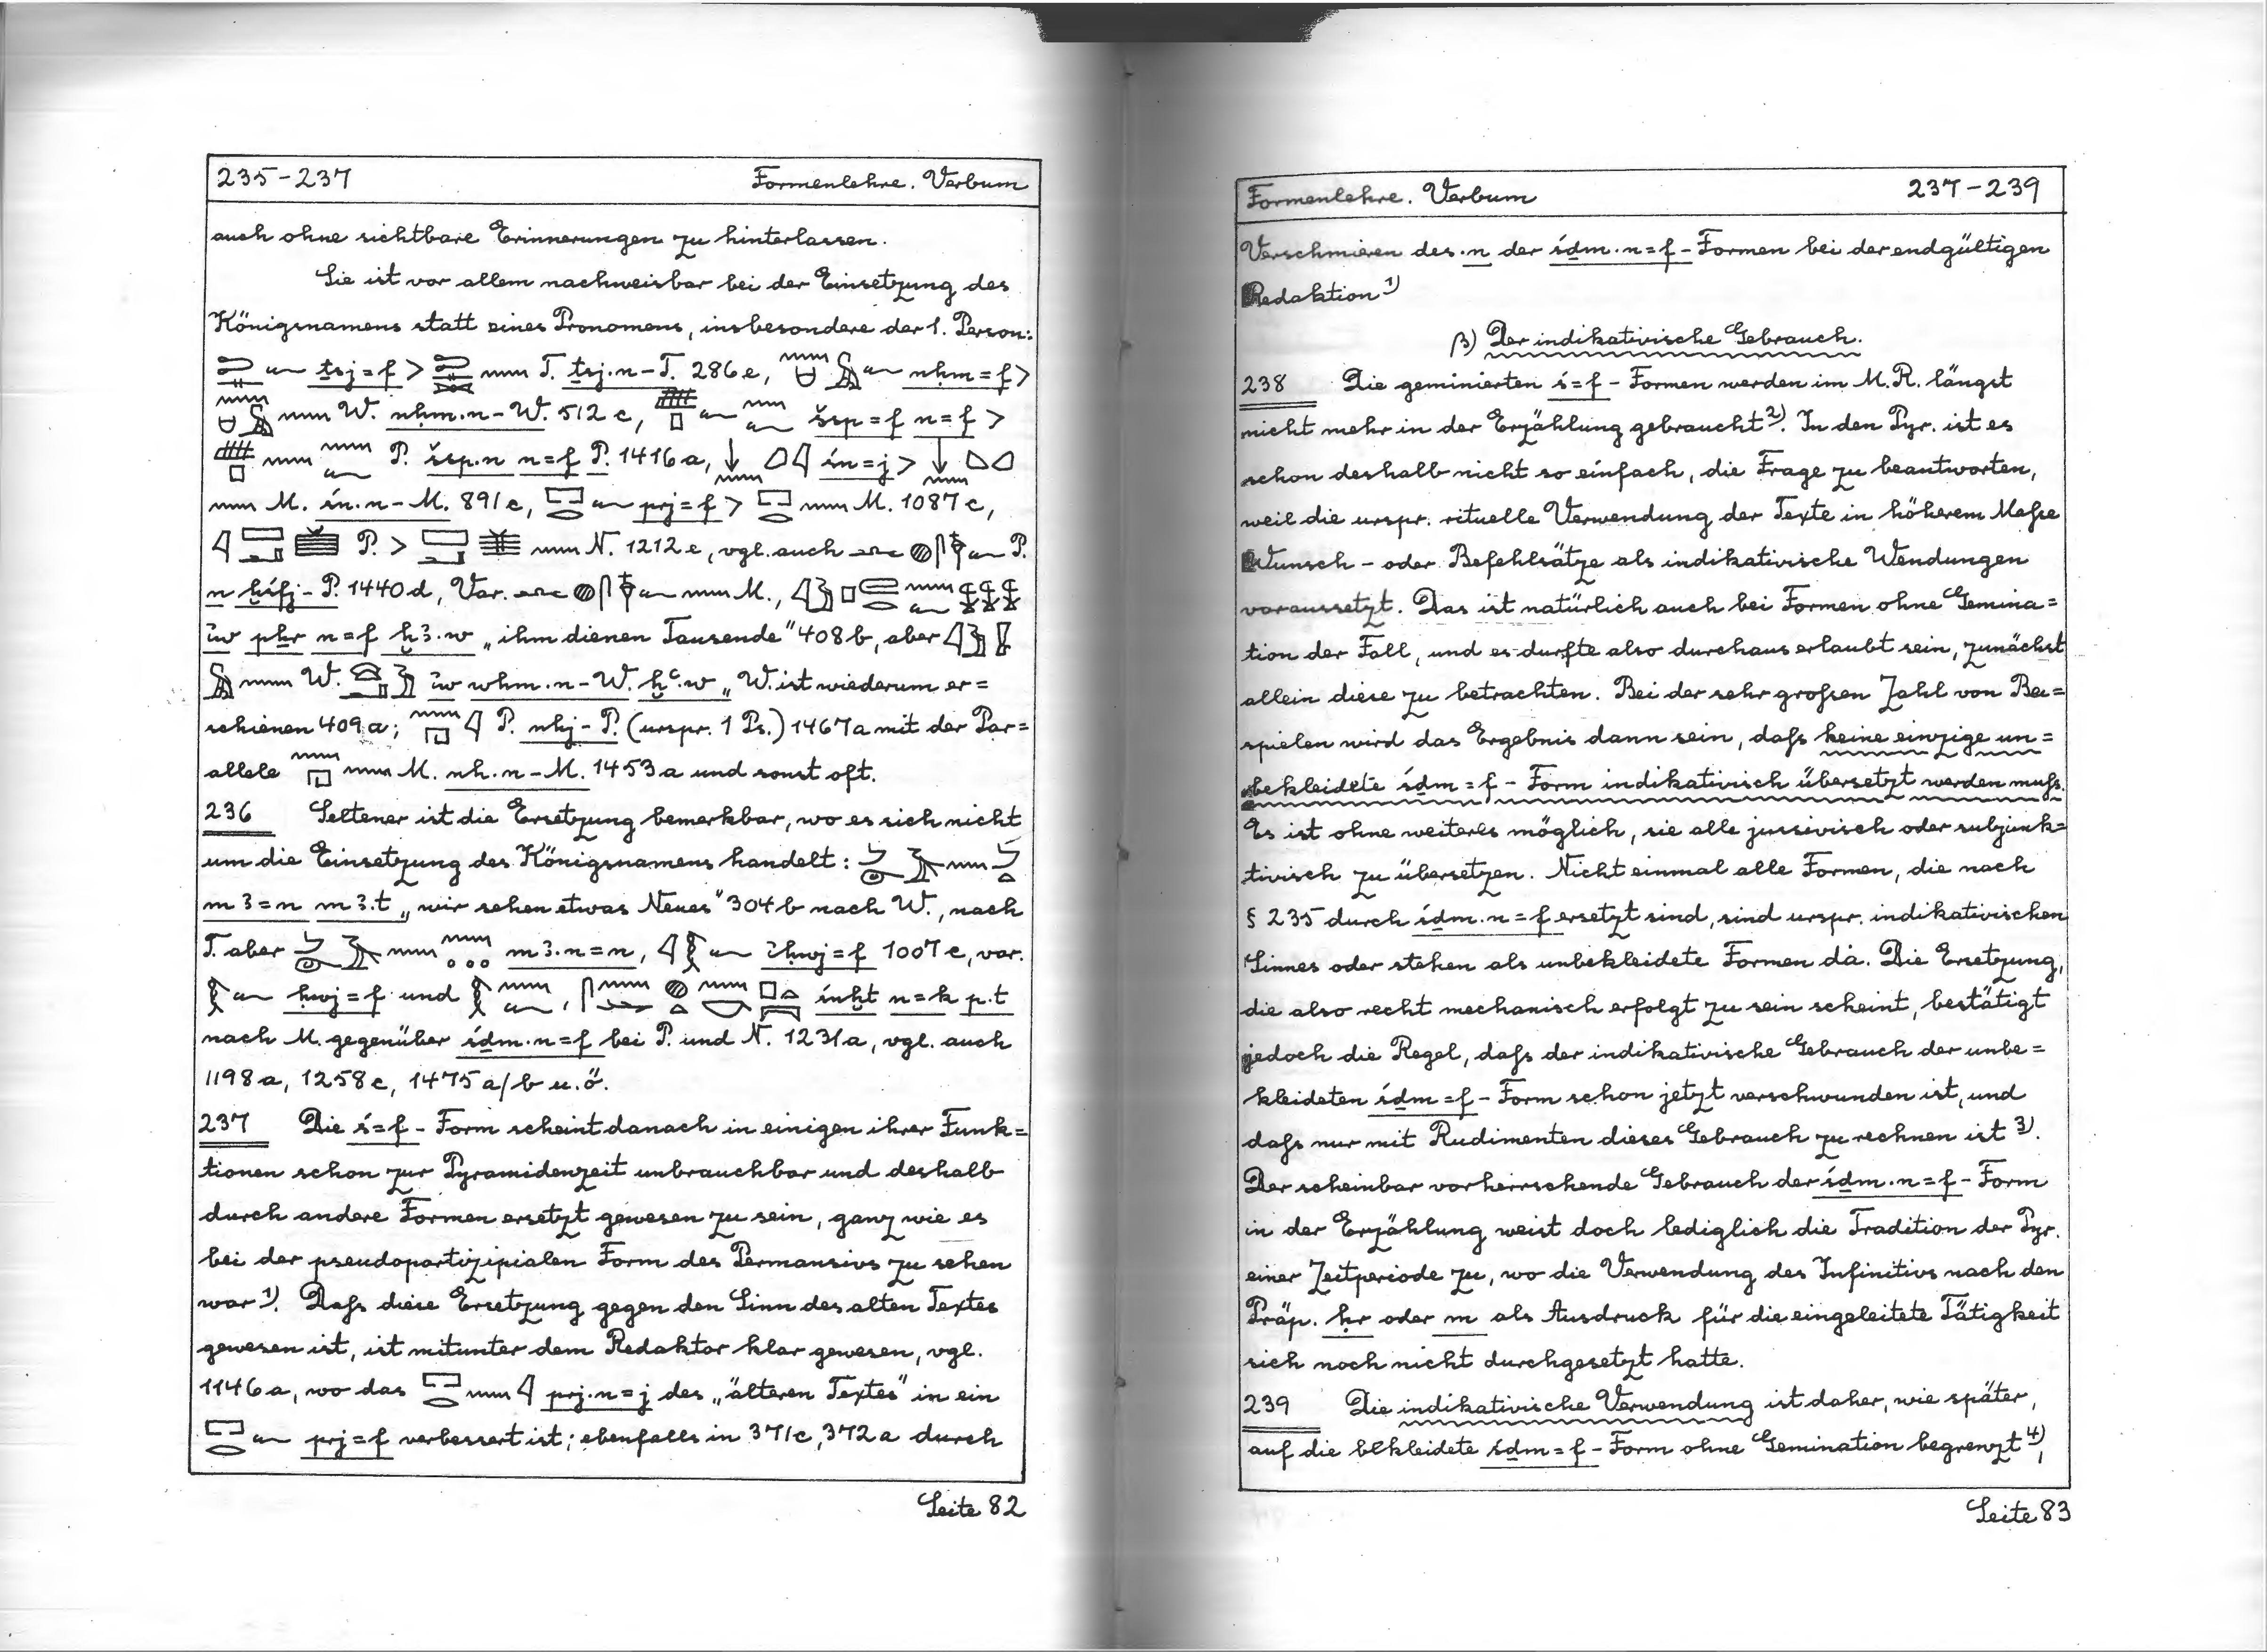 235-237 Formenlehre. Verbum
auch ohne sichtbare Erinnerungen zu hinterlassen.
Sie ist vor allem nachweisbar bei der Einsetzung des
Königsnamens statt eines Pronomens, insbesondere der 1. Person:
ṯsj=f > T. ṯsj.n-T. 286e, nḥm=f >
W. nḥm.n-W. 512c, šsp=f n=f >
P. šsp.n n=f P. 1416a, in=j >
M. in.n-M. 891c, prj=f > M. 1087c,
P. > N. 1212e, vgl. auch P.
n ḫsfj-P. 1440d, Var. M.,
iw pḫr n=f ḫꜣ.w „ihm dienen Tausende" 408b, aber
W. iw wḥm.n-W. ḫꜥ.w „W. ist wiederum er=
schienen 409a; P. nhj-P. (urspr. 1 Ps.) 1467a mit der Par=
allele M. nh.n-M. 1453a und sonst oft.
236 Seltener ist die Ersetzung bemerkbar, wo es sich nicht
um die Einsetzung des Königsnamens handelt:
mꜣ=n mꜣ.t „wir sehen etwas Neues" 304b nach W., nach
T. aber mꜣ.n=n, iḥwj=f 1007c, var.
ḥwj=f und , śnḫt n=k p.t
nach M. gegenüber śḏm.n=f bei P. und N. 1231a, vgl. auch
1198a, 1258c, 1475a/b u.ö.
237 Die ś=f-Form scheint danach in einigen ihrer Funk=
tionen schon zur Pyramidenzeit unbrauchbar und deshalb
durch andere Formen ersetzt gewesen zu sein, ganz wie es
bei der pseudopartizipialen Form des Permansivs zu sehen
war 1). Dafs diese Ersetzung gegen den Sinn des alten Textes
gewesen ist, ist mitunter dem Redaktor klar gewesen, vgl.
1146a, wo das prj.n=j des „älteren Textes" in ein
prj=f verbessert ist; ebenfalls in 371c, 372a durch
Seite 82
Formenlehre. Verbum 237-239
Verschmieren des .n der śḏm.n=f-Formen bei der endgültigen
Redaktion 1)
β) Der indikativische Gebrauch.
238 Die geminierten ś=f-Formen werden im M.R. längst
nicht mehr in der Erzählung gebraucht 2). In den Pyr. ist es
schon deshalb nicht so einfach, die Frage zu beantworten,
weil die urspr. rituelle Verwendung der Texte in höherem Mafse
Wunsch- oder Befehlsätze als indikativische Wendungen
voraussetzt. Das ist natürlich auch bei Formen ohne Gemina=
tion der Fall, und es durfte also durchaus erlaubt sein, zunächst
allein diese zu betrachten. Bei der sehr grofsen Zahl von Bei=
spielen wird das Ergebnis dann sein, dafs keine einzige un=
bekleidete śḏm=f-Form indikativisch übersetzt werden mufs.
Es ist ohne weiteres möglich, sie alle jussivisch oder subjunk=
tivisch zu übersetzen. Nicht einmal alle Formen, die nach
§ 235 durch śḏm.n=f ersetzt sind, sind urspr. indikativischen
Sinnes oder stehen als unbekleidete Formen da. Die Ersetzung,
die also recht mechanisch erfolgt zu sein scheint, bestätigt
jedoch die Regel, dafs der indikativische Gebrauch der unbe=
kleideten śḏm=f-Form schon jetzt verschwunden ist, und
dafs nur mit Rudimenten dieses Gebrauch zu rechnen ist 3).
Der scheinbar vorherrschende Gebrauch der śḏm.n=f-Form
in der Erzählung weist doch lediglich die Tradition der Pyr.
einer Zeitperiode zu, wo die Verwendung des Infinitivs nach den
Präp. ḥr oder m als Ausdruck für die eingeleitete Tätigkeit
sich noch nicht durchgesetzt hatte.
239 Die indikativische Verwendung ist daher, wie später,
auf die bekleidete śḏm=f-Form ohne Gemination begrenzt 4),
Seite 83